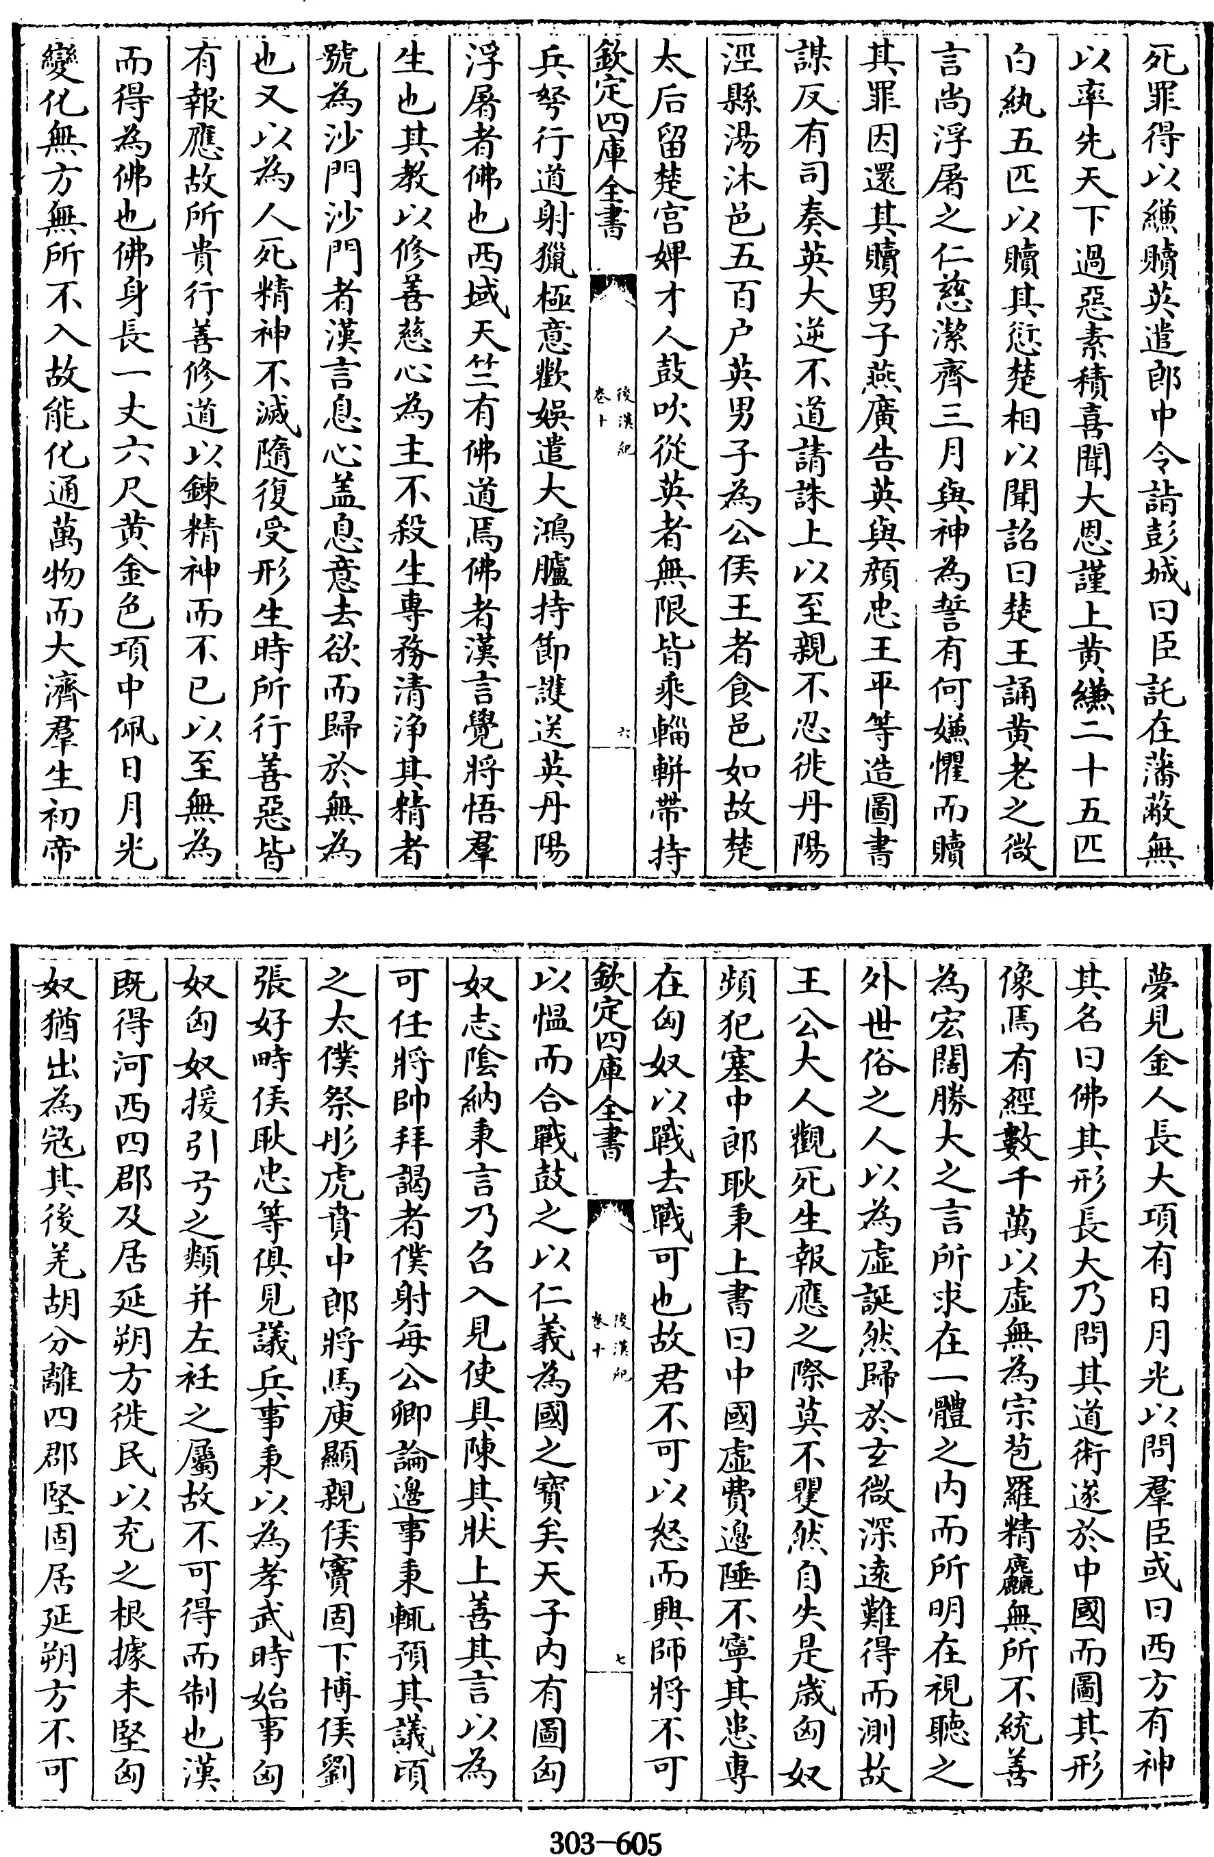 死罪得以縑贖英遣郎中令詣彭城曰臣託在藩蔽無
以率先天下過惡素積喜聞大恩謹上黄縑二十五匹
白紈五匹以贖其愆楚相以聞詔曰楚王誦黄老之微
言尚浮屠之仁慈潔齊三月與神為誓有何嫌懼而贖
其罪因還其贖男子燕廣告英與顔忠王平等造圖書
謀反有司奏英大逆不道請誅上以至親不忍徙丹陽
涇縣湯沐邑五百户英男子為公侯王者食邑如故楚
太后留楚宫婢才人鼓吹從英者無限皆乘輜軿帶持
欽定四庫全書
後漢紀
卷十
六
兵弩行道射獵極意歡娱遣大鴻臚持節護送英丹陽
浮屠者佛也西域天竺有佛道焉佛者漢言覺將悟羣
生也其教以修善慈心為主不殺生專務清净其精者
號為沙門沙門者漢言息心盖息意去欲而歸於無為
也又以為人死精神不滅隨復受形生時所行善惡皆
有報應故所貴行善修道以鍊精神而不已以至無為
而得為佛也佛身長一丈六尺黄金色項中佩日月光
變化無方無所不入故能化通萬物而大濟羣生初帝
夢見金人長大項有日月光以問羣臣或曰西方有神
其名曰佛其形長大乃問其道術遂於中國而圖其形
像焉有經數千萬以虚無為宗苞羅精麤無所不統善
為宏闊勝大之言所求在一體之内而所明在視聽之
外世俗之人以為虚誕然歸於玄微深逺難得而測故
王公大人觀死生報應之際莫不矍然自失是歳匈奴
頻犯塞中郎耿秉上書曰中國虚費邉陲不寧其患專
在匈奴以戰去戰可也故君不可以怒而興師將不可
欽定四庫全書
後漢紀
卷十
七
以愠而合戰鼓之以仁義為國之寶矣天子内有圖匈
奴志陰納秉言乃召入見使具陳其狀上善其言以為
可任將帥拜謁者僕射每公卿論邉事秉輒預其議頃
之太僕祭肜虎賁中郎將馬廖顯親侯竇固下博侯劉
張好畤侯耿忠等俱見議兵事秉以為孝武時始事匈
奴匈奴援引弓之類并左衽之屬故不可得而制也漢
既得河西四郡及居延朔方徙民以充之根據未堅匈
奴猶出為冦其後羌胡分離四郡堅固居延朔方不可
303-605